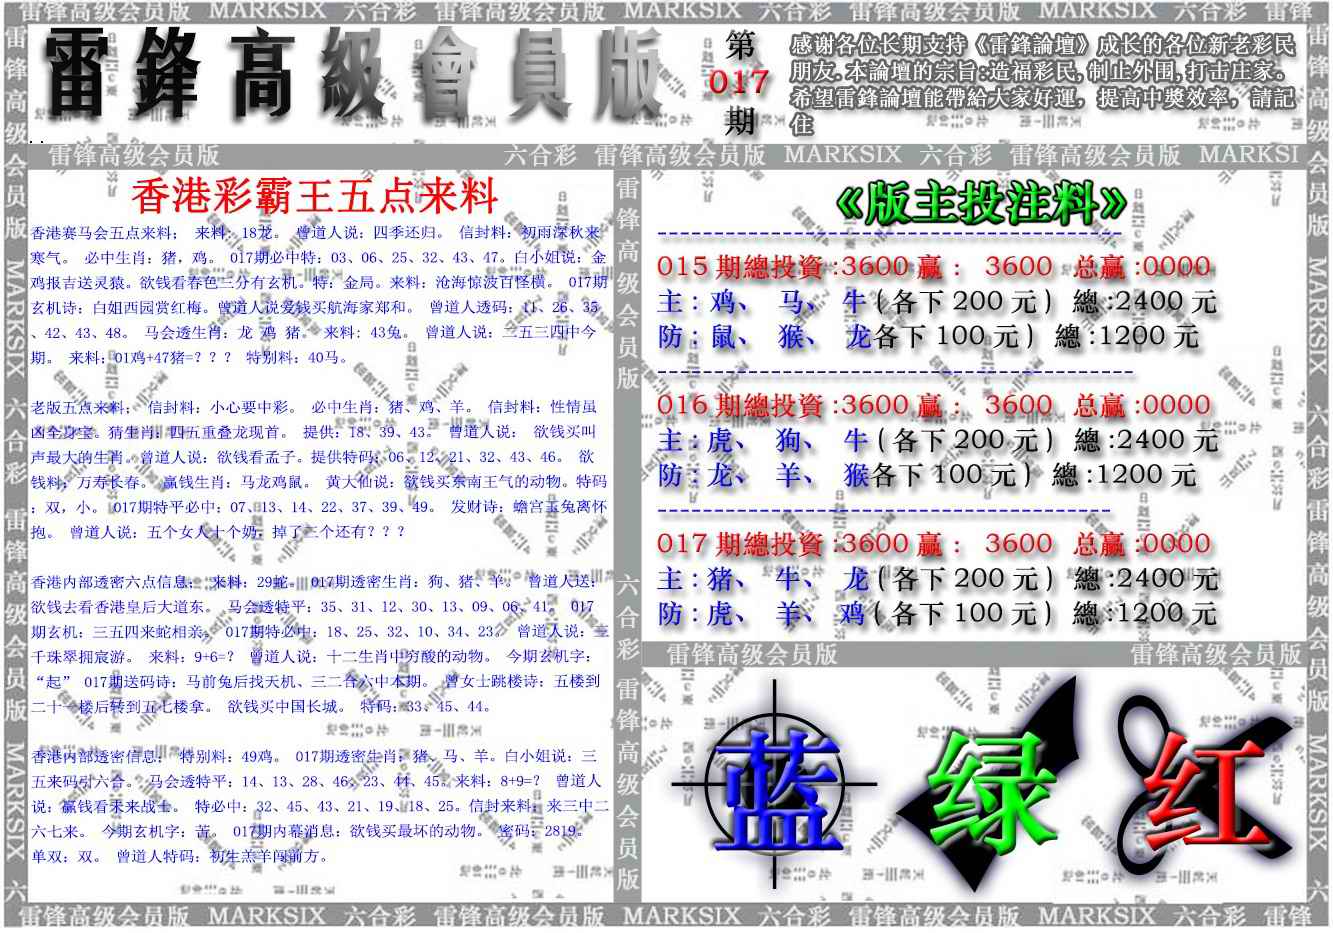 雷锋高级会员版 MARKSIX 六合彩 雷锋高级会员版 MARKSIX 六合彩 雷锋高级会员版 MARKSIX 六合彩 雷锋
雷鋒高級會員版
第
017
期
感谢各位长期支持《雷鋒論壇》成长的各位新老彩民
朋友.本論壇的宗旨:造福彩民,制止外围,打击庄家。
希望雷鋒論壇能帶給大家好運，提高中獎效率，請記
住
雷锋高级会员版 六合彩 雷锋高级会员版 MARKSIX 六合彩 雷锋高级会员版 MARKSI
香港彩霸王五点来料
香港赛马会五点来料； 来料：18龙。 曾道人说：四季还归。 信封料：初雨深秋来
寒气。 必中生肖：猪，鸡。 017期必中特：03、06、25、32、43、47。白小姐说：金
鸡报吉送灵猿。欲钱看春色三分有玄机。特：金局。来料：沧海惊波百怪横。 017期
玄机诗：白姐西园赏红梅。曾道人说爱钱买航海家郑和。 曾道人透码：11、26、35
、42、43、48。 马会透生肖：龙 鸡 猪。 来料：43兔。 曾道人说：二五三四中今
期。 来料：01鸡+47猪=？？？ 特别料：40马。
老版五点来料； 信封料：小心要中彩。 必中生肖：猪、鸡、羊。 信封料：性情虽
凶全身宝。猜生肖：四五重叠龙现首。 提供：18、39、43。 曾道人说： 欲钱买叫
声最大的生肖。曾道人说：欲钱看孟子。提供特码：06、12、21、32、43、46。 欲
钱料；万寿长春。 赢钱生肖：马龙鸡鼠。 黄大仙说：欲钱买东南王气的动物。特码
；双，小。 017期特平必中：07、13、14、22、37、39、49。 发财诗：蟾宫玉兔离怀
抱。 曾道人说：五个女人十个奶，掉了三个还有？？？
香港内部透密六点信息； 来料：29蛇。 017期透密生肖：狗、猪、羊。 曾道人送：
欲钱去看香港皇后大道东。 马会透特平：35、31、12、30、13、09、06、41。 017
期玄机：三五四来蛇相亲。 017期特必中：18、25、32、10、34、23。 曾道人说：三
千珠翠拥宸游。 来料：9+6=？ 曾道人说：十二生肖中穷酸的动物。 今期玄机字：
“起” 017期送码诗：马前兔后找天机、三二合六中本期。 曾女士跳楼诗：五楼到
二十一楼后转到五七楼拿。 欲钱买中国长城。 特码：33、45、44。
香港内部透密信息； 特别料：49鸡。 017期透密生肖：猪、马、羊。白小姐说：三
五来码引六合。 马会透特平：14、13、28、46、23、44、45。来料：8+9=？ 曾道人
说：赢钱看未来战士。 特必中：32、45、43、21、19、18、25。信封来料：来三中二
六七来。 今期玄机字：苦。 017期内幕消息：欲钱买最坏的动物。 密码：2819。
单双：双。 曾道人特码：初生羔羊闯前方。
《版主投注料》
015 期總投資:3600 赢： 3600 总赢:0000
主：鸡、 马、 牛(各下200元) 總:2400元
防：鼠、 猴、 龙各下100元) 總:1200元
016 期總投資:3600 赢： 3600 总赢:0000
主：虎、 狗、 牛(各下200元) 總:2400元
防：龙、 羊、 猴各下100元) 總:1200元
017 期總投資:3600 赢： 3600 总赢:0000
主：猪、 牛、 龙(各下200元) 總:2400元
防：虎、 羊、 鸡(各下100元) 總:1200元
雷锋高级会员版 雷锋高级会员版
蓝 绿 红
雷锋高级会员版 MARKSIX 六合彩 雷锋高级会员版 MARKSIX 六合彩 雷锋高级会员版 MARKSIX 六合彩 雷锋
雷锋高级会员版 MARKSIX 六合彩 雷锋高级会员版 MARKSIX 六
雷锋高级会员版 六合彩 雷锋高级会员版
雷锋高级会员版 MARKSIX 六合彩 雷锋高级会员版 MARKSIX 六